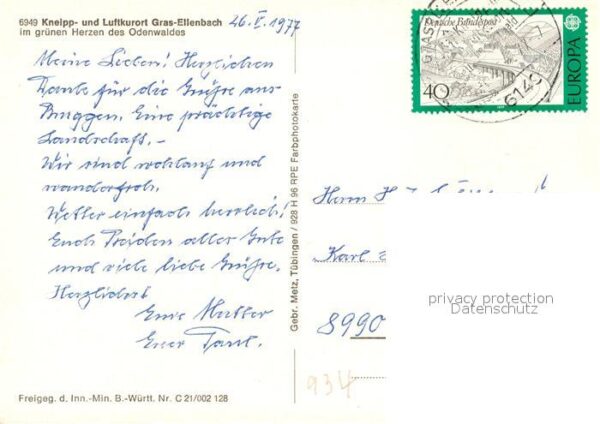 6949 Kneipp- und Luftkurort Gras-Ellenbach
im grünen Herzen des Odenwaldes
26.V.1977
Meine Lieben! Herzlichen
Dank für die Grüße aus
Bruggen. Eine prächtige
Landschaft.-
Wir sind wohlauf und
wanderfroh.
Wetter einfach herrlich!
Euch Beiden alles Gute
und viele liebe Grüße.
Herzlichst
Eure Mutter
Euer
Gebr. Metz, Tübingen / 928 H 96 RPE Farbphotokarte
Deutsche Bundespost
40
EUROPA
614
Herrn H
Karl
8990
934
privacy protection
Datenschutz
Freigeg. d. Inn.-Min. B.-Württ. Nr. C 21/002 128